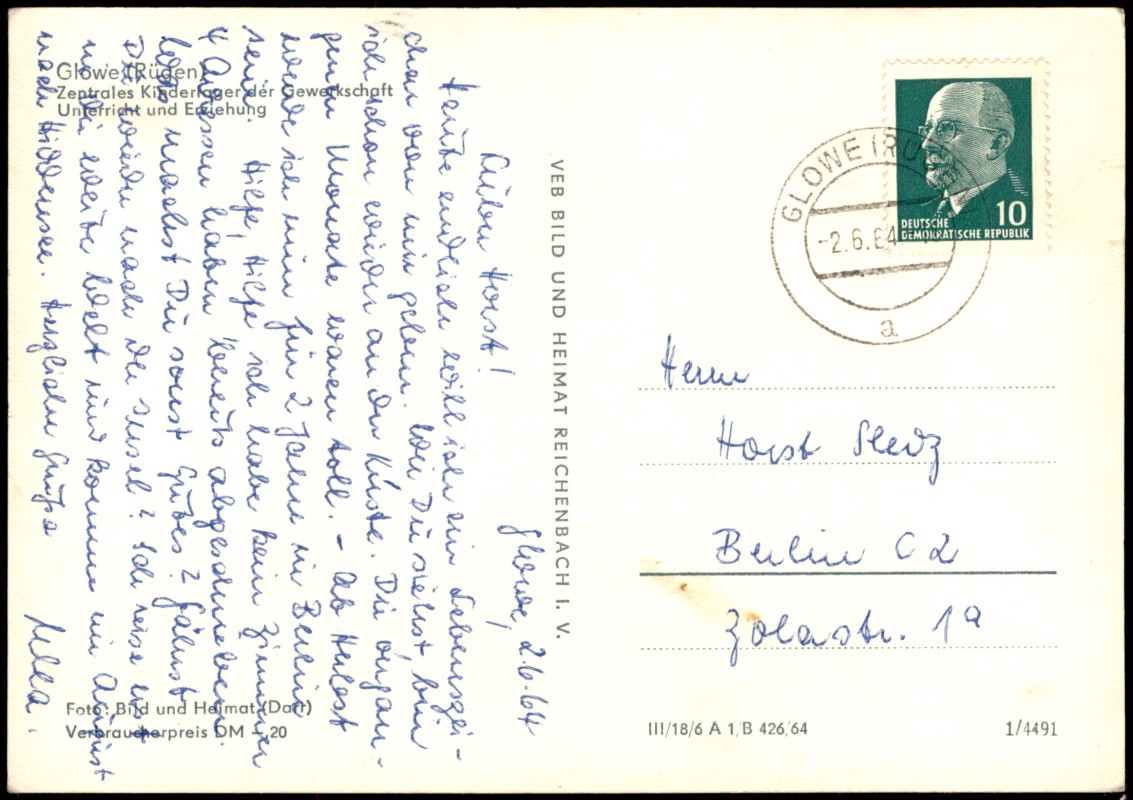 Glowe (Rügen)
Zentrales Kinderlager der Gewerkschaft
Unterricht und Erziehung
Glowe, 2.6.64
Lieber Horst!
Heute endlich will ich ein Lebenszei-
chen von mir geben. Wie Du siehst, bin
ich schon wieder an der Küste. Die vergan-
genen Monate waren toll. – Ab Herbst
werde ich nun für 2 Jahre in Berlin
sein. Hilfe, Hilfe ich habe kein Zimmer
4 Adressen haben bereits abgeschrieben.
Was machst Du sonst Gutes? Fährst
Du wieder nach der Insel? Ich reise erst
in die weite Welt und komme im August
nach Hiddensee. Herzliche Grüße
Foto: Bild und Heimat (Darr)
Verbraucherpreis DM –,20
VEB BILD UND HEIMAT REICHENBACH I. V.
GLOWE (RÜ
-2.6.64
a
10
DEUTSCHE
DEMOKRATISCHE REPUBLIK
Herrn
Horst
Berlin C 2
Zolastr. 1a
III/18/6 A 1/B 426/64
1/4491